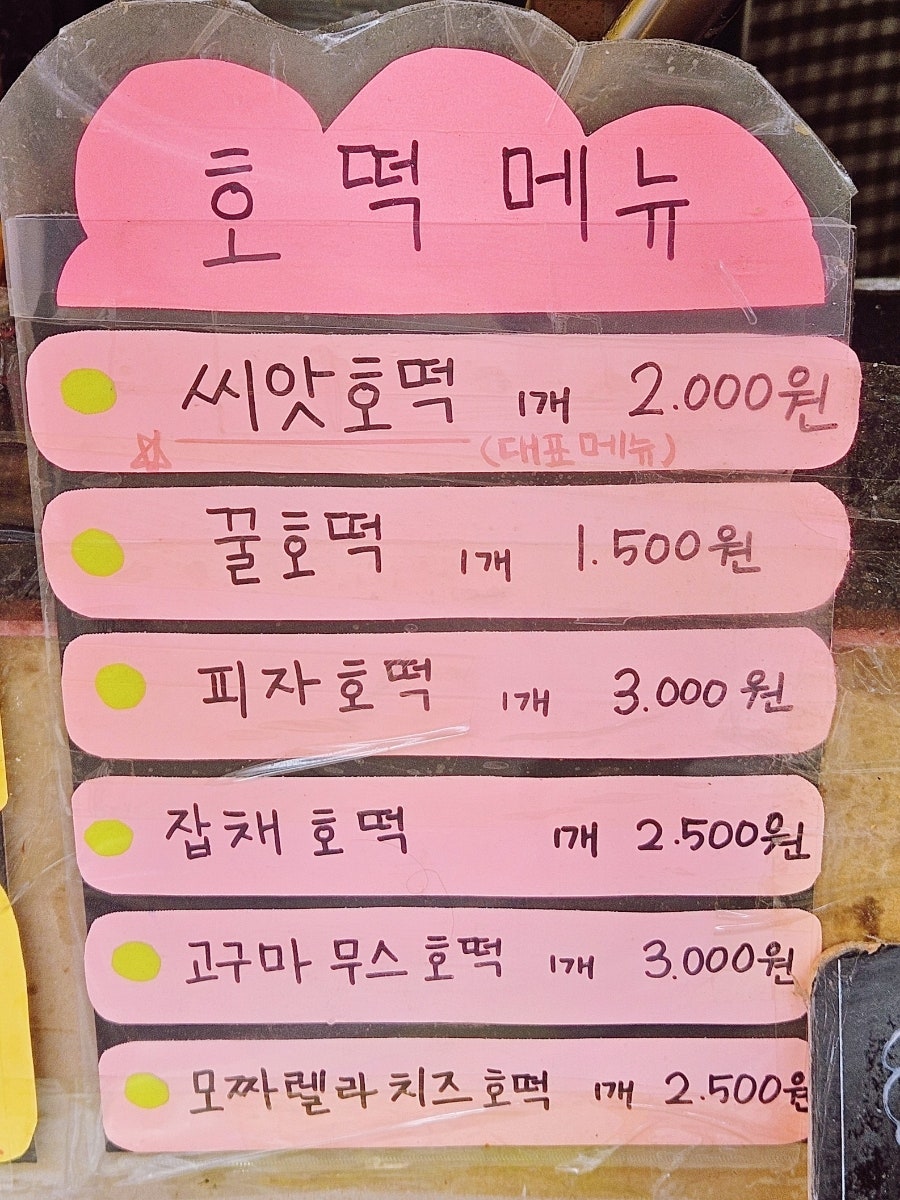 호떡 메뉴
씨앗호떡 1개 2.000원
☆ (대표메뉴)
꿀호떡 1개 1.500원
피자호떡 1개 3.000원
잡채 호떡 1개 2.500원
고구마 무스 호떡 1개 3.000원
모짜렐라 치즈 호떡 1개 2.500원